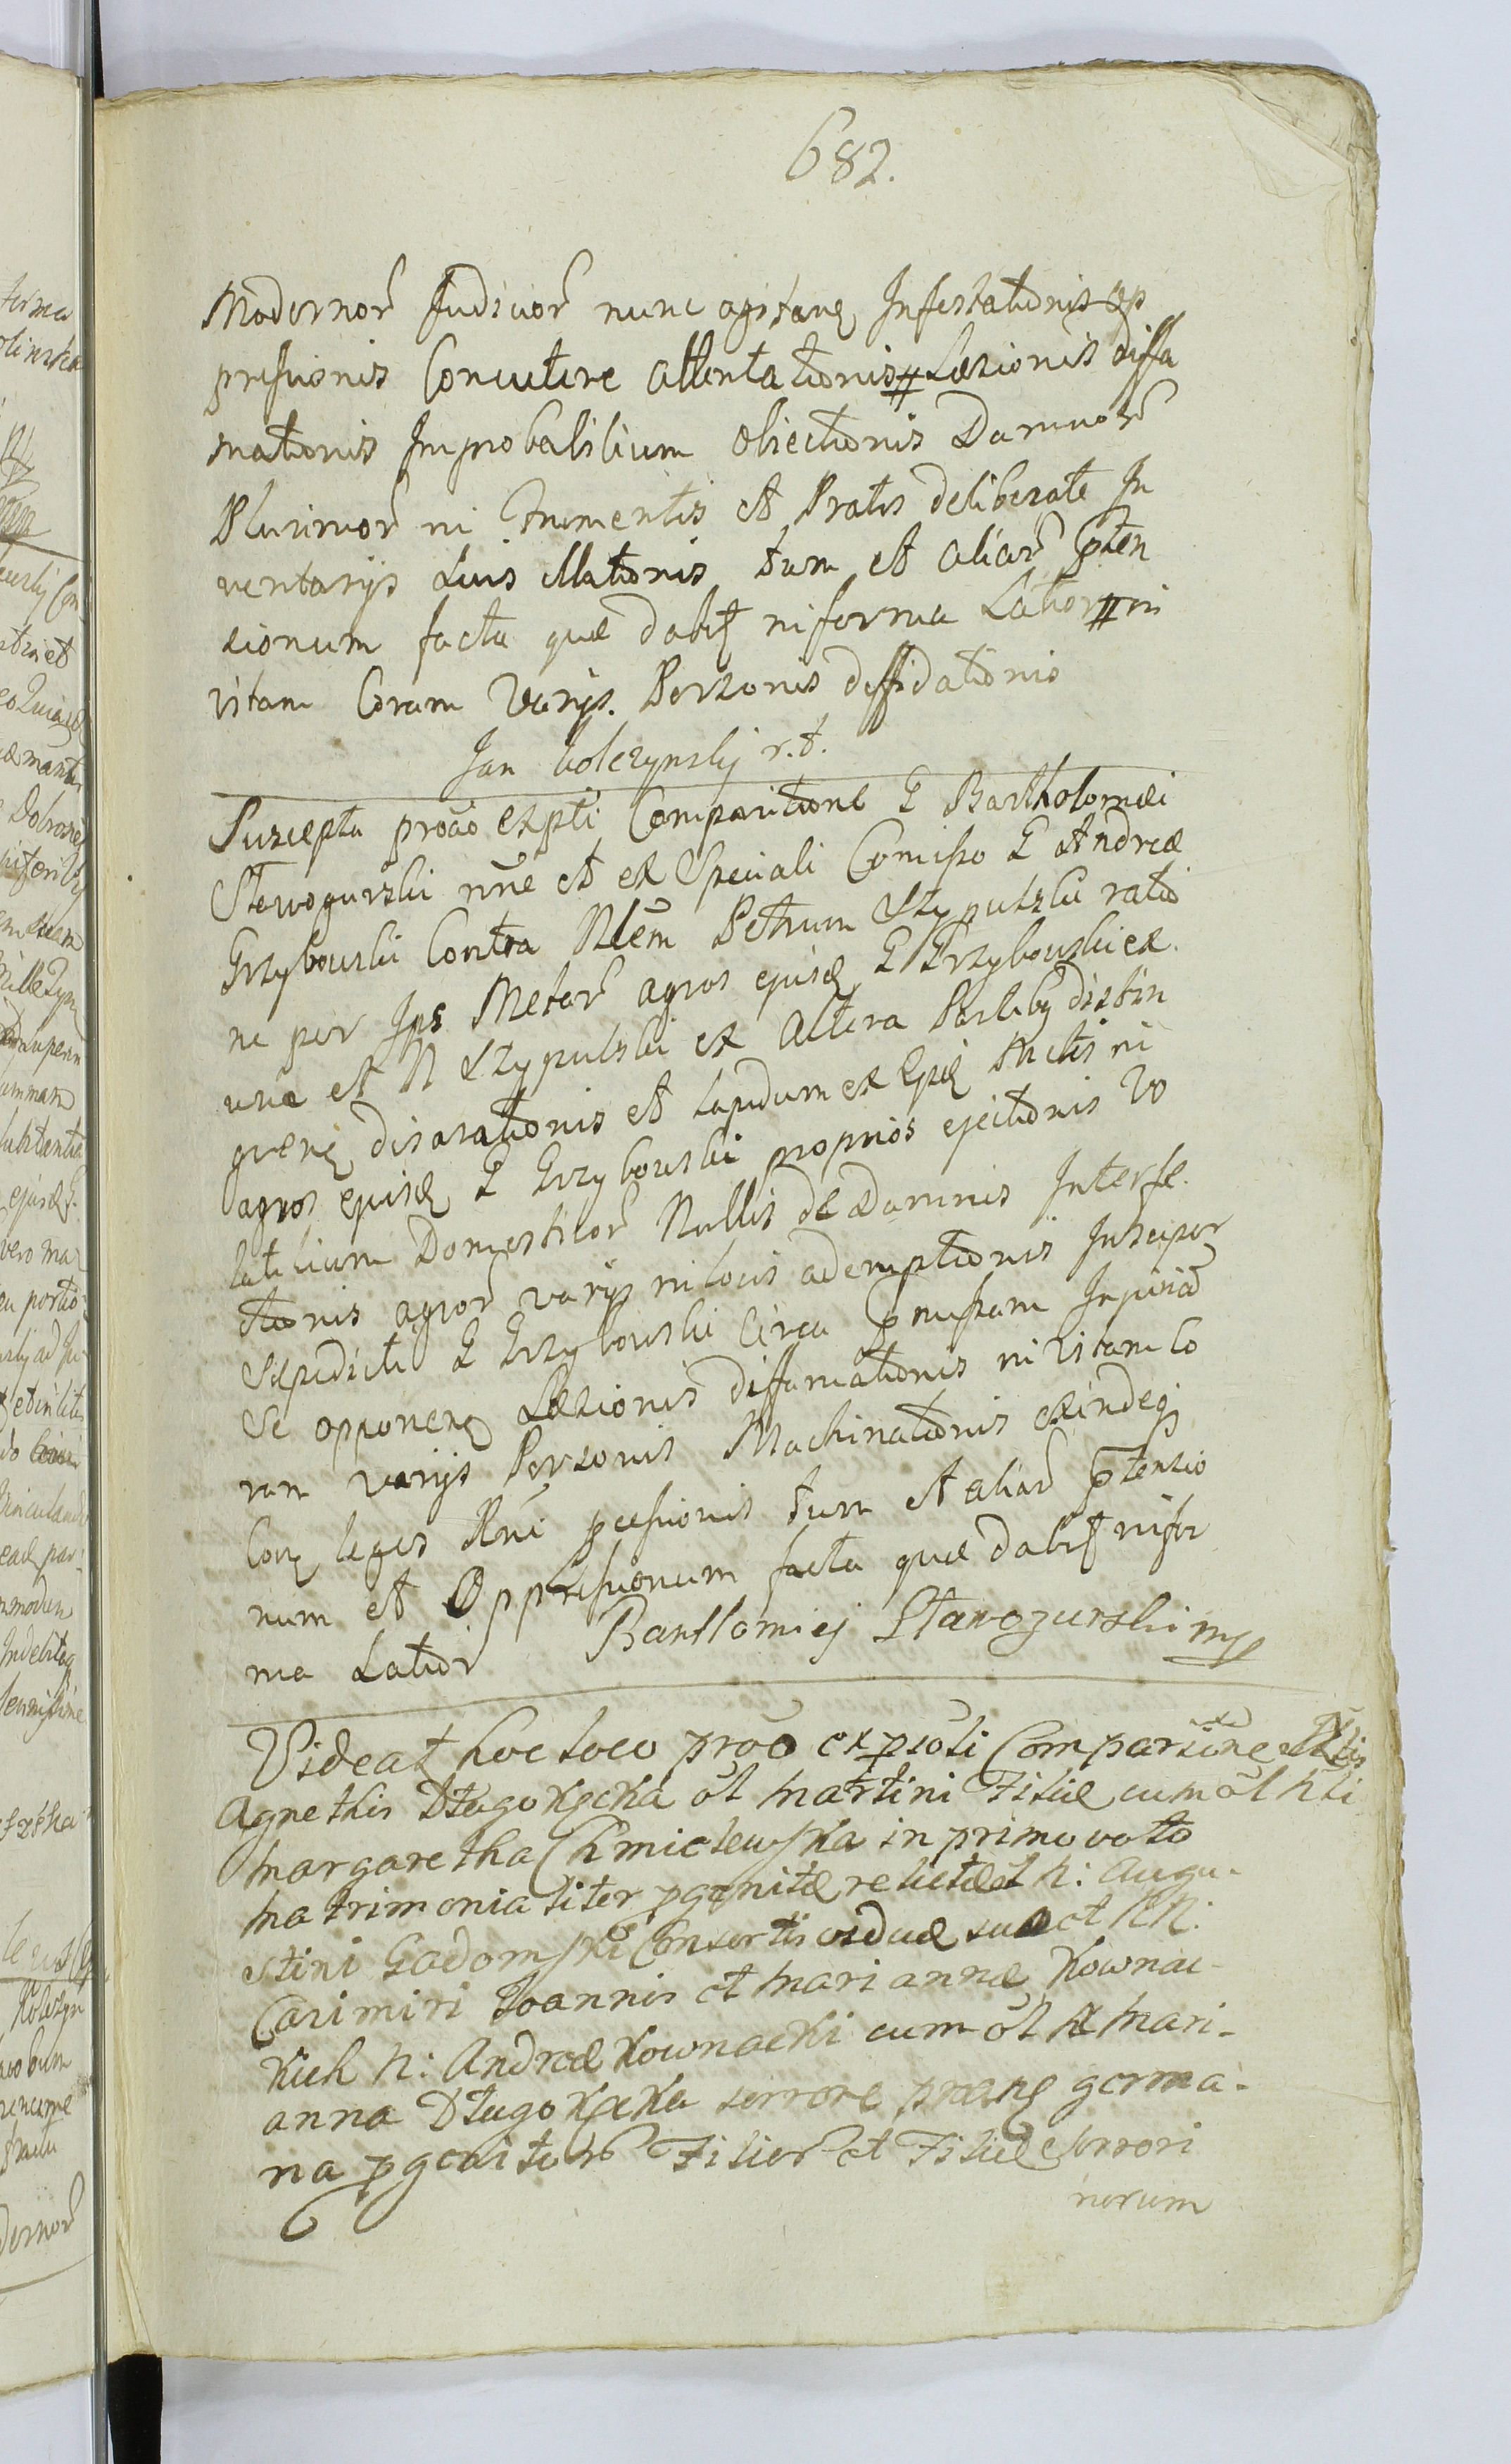 682.
Modernor Judicior nunc agitanę Infestationis op
pressionis Concutere attentationis # Læzionis diffa
mationis Improbabilium obiectionis Damnor
Plurimor in Frumentis et Pratis deliberate In
ventarijs suis illationis tum et aliar pten
sionum facta quæ dabit in forma Lator # in
vitam Coram Varijs Personis diffidationis
Jan Kolczynsky r.t.
Suscepta proao expti Comparitione G Bartholomæi
Stawogurski nne et ex Speciali Comisso G Andreæ
Grzybowski Contra Nlem Petrum Szypulski ratio
ne per Ips Metar agros ejusd G Grzybowski ex
una et N Szypulski ex altera Partibg distin
gvenę disarationis et Lapidum ex Ipsis Metis in
agros ejusd G Grzybowski proprios ejectionis Vo
latilium Domesticor Nullis de Damnis Interfe
ctionis agror varijs in locis ademptionis Insuper
Sæpedicti G Grzybowski Circa pmissam Injuriã
Se opponenę Læzionis diffamationis in Vitam Co
ram varijs Personis Machinationis exindeg
Conę leges Rni pcessionis tum et aliar ptensio
num et Oppressionum facta quæ dabit in for
ma Lator Bartlomiej Stawogurski mp
Videat hoc loco proo expsoti Comparitione
Agnethis Dlugokęcka ol Martini Filiæ cum ol N
Margaretha Chmielewska in primo voto
Matrimonialiter pgenitæ relictæ ol N: Augu-
stini Gadomski Consortis viduæ suo et NN:
Casimiri Joannis et Mariannæ Kownac-
kich N: Andreæ Kownacki cum ol N Mari-
anna Dlugokęcka sorrore præne germa-
na pgenitor Filior et Filiæ Sorrori
norum